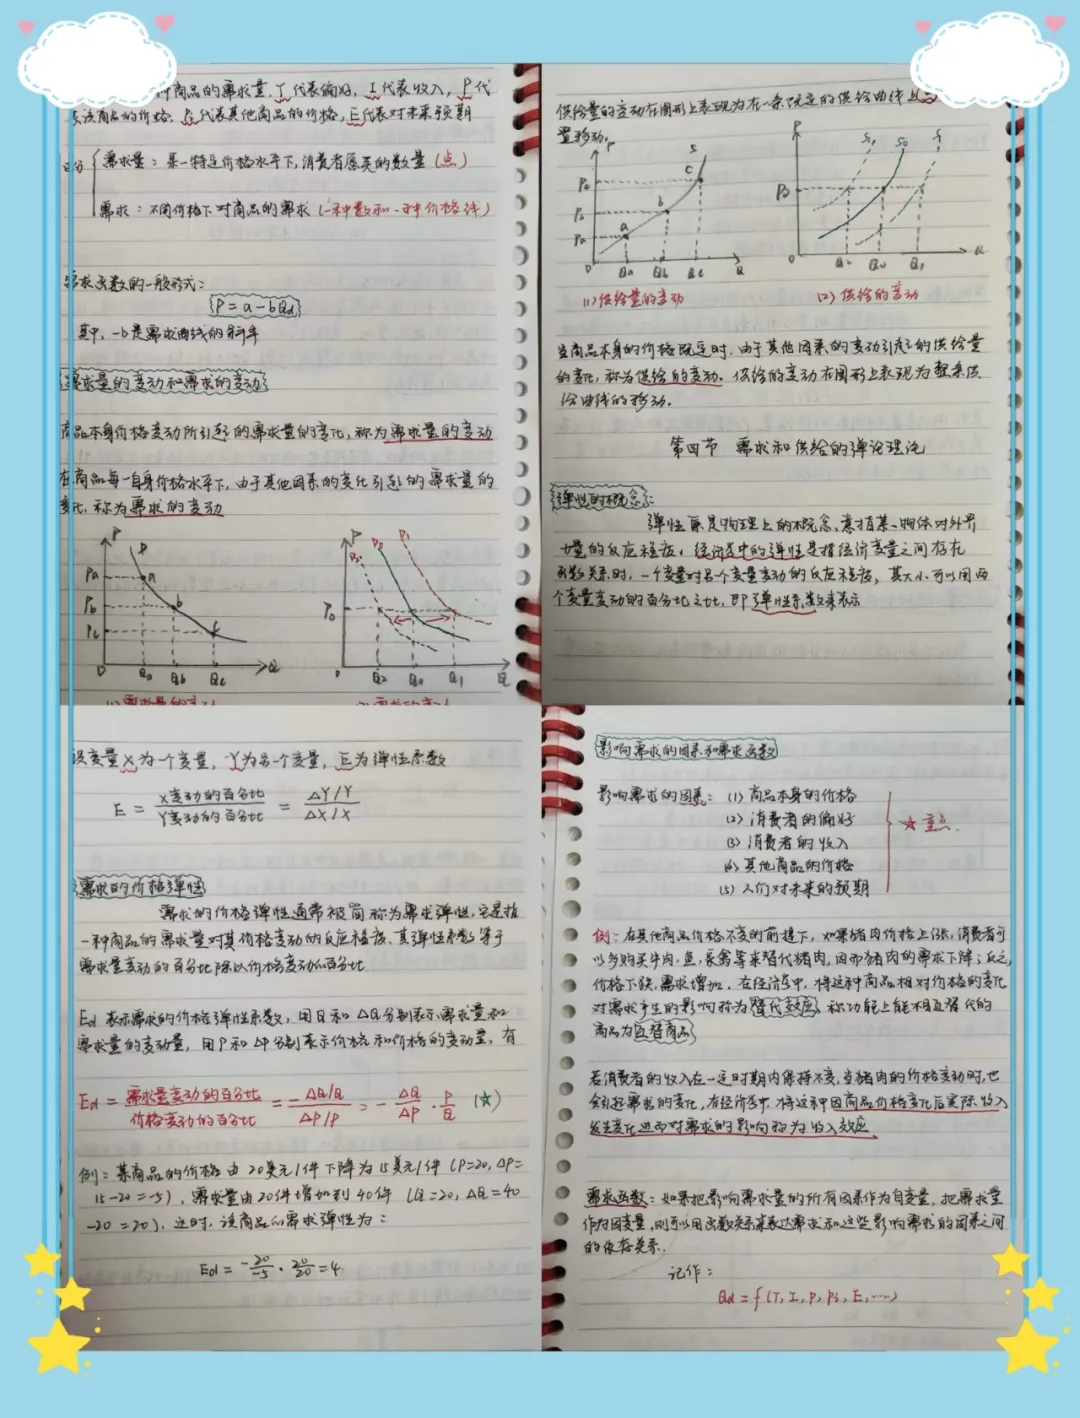 种商品的需求量,T代表偏好,I代表收入,P代
表该商品的价格,Pj代表其他商品的价格,E代表对未来预期
区分
需求量:某一特定价格水平下,消费者愿买的数量(点)
需求:不同价格下对商品的需求(一种数和一种价格线)
需求函数的一般形式:
P=a-bQd
其中,-b是需求曲线的斜率
需求量的变动和需求的变动
商品本身价格变动所引起的需求量的变化,称为需求量的变动
在商品每一自身价格水平下,由于其他因素的变化引起的需求量的
变化,称为需求的变动
P
Pa a
Pb b
Pc c
0 Qa Qb Qc Q
P P2 P0 P1
P0
0 Q2 Q0 Q1 Q
(1)需求量的变动
(2)需求的变动
供给量的变动在图形上表现为在一条既定的供给曲线上
置移动。
P S
Pc c
Pb b
Pa a
0 Qa Qb Qc Q
(1)供给量的变动
P S2 S0 S1
P0
0 Q2 Q0 Q1 Q
(2)供给的变动
当商品本身的价格既定时,由于其他因素的变动引起的供给量
的变化,称为供给的变动。供给的变动在图形上表现为整条供
给曲线的移动。
第四节 需求和供给的弹论理论
弹性的概念:
弹性原是物理上的概念,意指某一物体对外界
力量的反应程度,经济学中的弹性是指经济变量之间存在
函数关系时,一个变量对另个变量变动的反应程度,其大小可以用两
个变量变动的百分比之比,即弹性系数来表示
设变量X为一个变量,Y为另一个变量,E为弹性系数
E = X变动的百分比/Y变动的百分比 = ΔY/Y / ΔX/X
需求的价格弹性
需求的价格弹性通常被简称为需求弹性,它是指
一种商品的需求量对其价格变动的反应程度,其弹性系数等于
需求量变动的百分比除以价格变动的百分比
Ed表示需求的价格弹性系数,用Q和ΔQ分别表示需求量和
需求量的变动量,用P和ΔP分别表示价格和价格的变动量,有
Ed = 需求量变动的百分比/价格变动的百分比 = - ΔQ/Q / ΔP/P = - ΔQ/ΔP · P/Q (☆)
例:某商品的价格由20美元/件下降为15美元/件(P=20,ΔP=
15-20=-5),需求量由20件增加到40件(Q=20,ΔQ=40
-20=20),这时,该商品的需求弹性为:
Ed = -20/-5 · 20/20 = 4
影响需求的因素和需求函数
影响需求的因素:(1)商品本身的价格
(2)消费者的偏好
(3)消费者的收入
(4)其他商品的价格
(5)人们对未来的预期
☆重点
例:在其他商品价格不变的前提下,如果猪肉价格上涨,消费者可
以多购买牛肉,鱼,家禽等来替代猪肉,因而猪肉的需求下降;反之,
价格下跌,需求增加。在经济学中,将这种商品相对价格的变化
对需求产生的影响称为替代效应,称功能上能相互替代的
商品为互替商品
若消费者的收入在一定时期内保持不变,当猪肉的价格变动时,也
会引起需求的变化,在经济学中,将这种因商品价格变化后实际收入
发生变化进而对需求的影响称为收入效应
需求函数:如果把影响需求量的所有因素作为自变量,把需求量
作为因变量,则可以用函数关系来表达需求和这些影响需求的因素之间
的依存关系.
记作:
Qd=f(T,I,P,Pj,E,……)